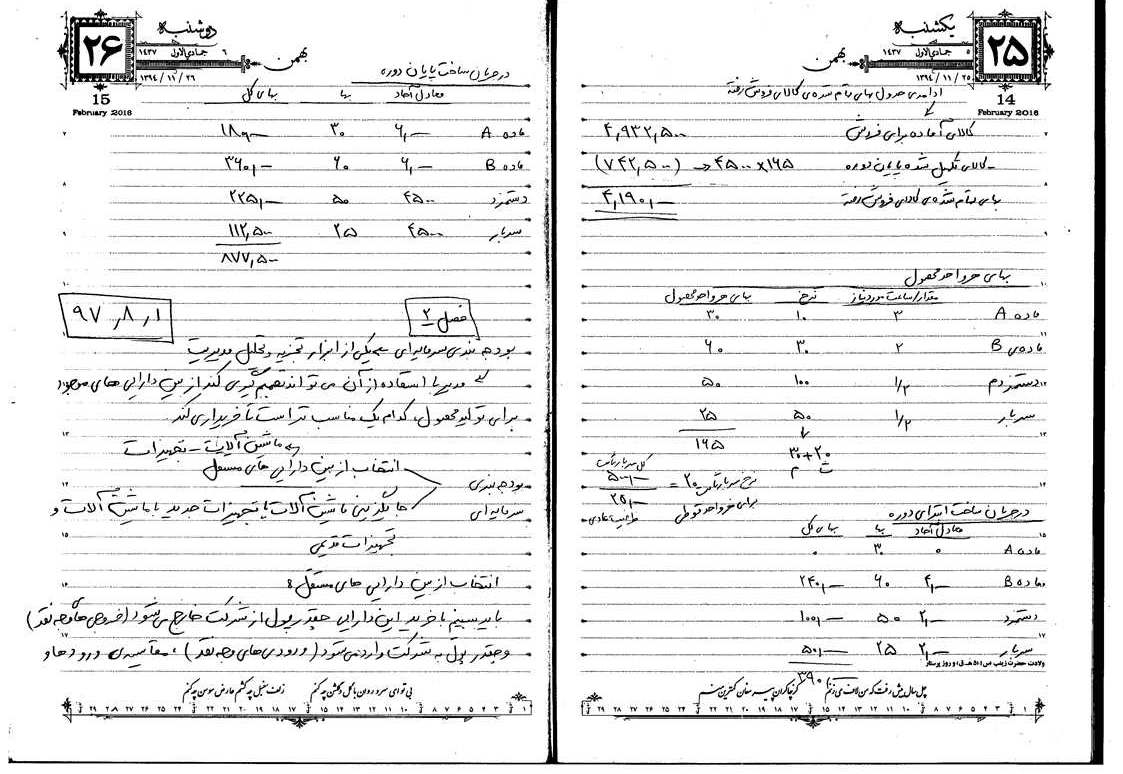 یکشنبه
۲۵
۵ جمادی الاول ۱۴۳۷
بهمن
۱۳۹۴/۱۱/۲۵
14
February 2016
ادامه‌ی جدول بهای تمام شده‌ی کالای فروش رفته
کالای آماده برای فروش ۴,۹۳۲,۵۰۰
- کالای تکمیل شده پایان دوره ۴۵۰۰ × ۱۶۵ → (۷۴۲,۵۰۰)
بهای تمام شده‌ی کالای فروش رفته ۴,۱۹۰,۰۰۰
بهای هر واحد محصول
مقدار/ساعت مورد نیاز نرخ بهای هر واحد محصول
ماده A ۳ ۱۰ ۳۰
ماده‌ی B ۲ ۳۰ ۶۰
دستمزد م ۱/۲ ۱۰۰ ۵۰
سربار ۱/۲ ۵۰ ۲۵
۱۶۵
۳۰ + ۲۰
م ث
نرخ سربار ثابت = ۲۰ = کل سربار ثابت
برای هر واحد قوطی ظرفیت عادی
در جریان ساخت ابتدای دوره
معادل آحاد بها بهای کل
ماده A ۰ ۳۰ ۰
ماده B ۴,۰۰۰ ۶۰ ۲۴۰,۰۰۰
دستمزد ۲,۰۰۰ ۵۰ ۱۰۰,۰۰۰
سربار ۲,۰۰۰ ۲۵ ۵۰,۰۰۰
ولادت حضرت زینب س (۵ ه‍.ق) و روز پرستار
۳۹۰
چل سال بیش رفت که من لاف می‌زنم کز چاکران پیر مغان کمترین منم
دوشنبه
۲۶
۶ جمادی الاول ۱۴۳۷
بهمن
۱۳۹۴/۱۱/۲۶
15
February 2016
در جریان ساخت پایان دوره
معادل آحاد بها بهای کل
ماده A ۶,۰۰۰ ۳۰ ۱۸۰,۰۰۰
ماده B ۶,۰۰۰ ۶۰ ۳۶۰,۰۰۰
دستمزد ۴۵۰۰ ۵۰ ۲۲۵,۰۰۰
سربار ۴۵۰۰ ۲۵ ۱۱۲,۵۰۰
۸۷۷,۵۰۰
فصل ۲ ۹۷,۸,۱
بودجه بندی سرمایه‌ای ← یکی از ابزار تجزیه و تحلیل مدیریت
مدیر با استفاده از آن می تواند تصمیم گیری کند از بین دارایی های موجود
برای تولید محصول، کدام یک مناسب تر است تا خریداری کند
ماشین آلات - تجهیزات
انتخاب از بین دارایی های مستقل
بودجه بندی
سرمایه‌ای جایگزینی ماشین آلات یا تجهیزات جدید با ماشین آلات و
تجهیزات قدیمی
انتخاب از بین دارایی های مستقل:
باید ببینیم با خرید این دارایی چقدر پول از شرکت خارج می شود (خروجی های وجه نقد)
و چقدر پول به شرکت وارد می شود (ورودی های وجه نقد)، مقایسه‌ی ورودها و
بی تو ای سرو روان با گل و گلشن چه کنم زلف سنبل چه کشم عارض سوسن چه کنم